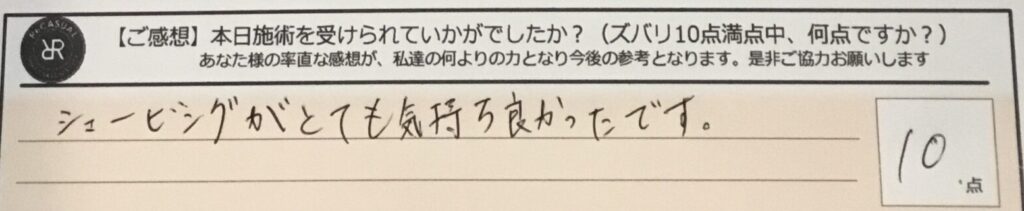 【ご感想】本日施術を受けられていかがでしたか？（ズバリ10点満点中、何点ですか？）
あなた様の率直な感想が、私達の何よりの力となり今後の参考となります。是非ご協力お願いします
シェービングがとても気持ち良かったです。
10
点